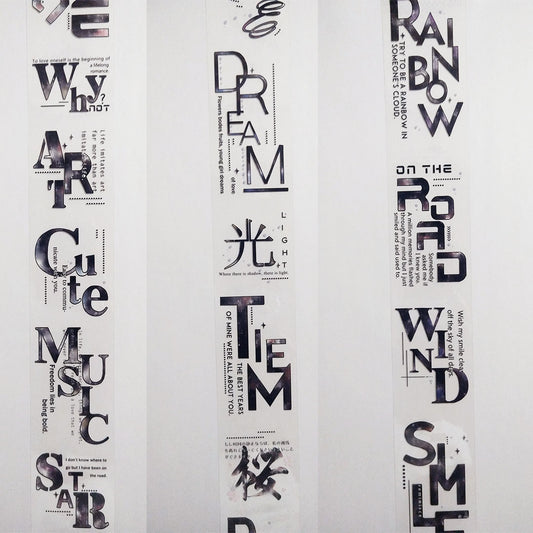 To love oneself is the beginning of
a lifelong
romance
Why
?
NOT
ART
Life imitates art
far more than art
imitates
Cute
Easy to commu-
nicate with you.
MUSIC
Freedom lies in
being bold.
STAR
I don't know where to
go but I have been on
the road.
DREAM
Flowers bodes fruits, young girl dreams
of love
光
LIGHT
Where there is shadow, there is light.
TIEM
THE BEST YEARS
OF MINE WERE ALL ABOUT YOU.
桜
D
RAINBOW
TRY TO BE A RAINBOW IN
SOMEONE'S CLOUD.
ON THE
ROAD
Somebody
asked me if
I knew you.
A million memories flashed
through my mind but I just
smiled and said used to.
WIND
Wish my smile clear
off the sky of all days.
SMLE